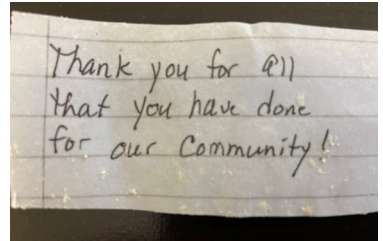 Thank you for all
that you have done
for our Community!